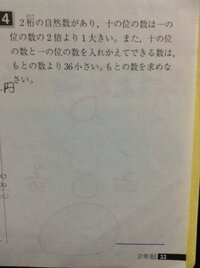 4
2桁の自然数があり，十の位の数は一の
位の数の2倍より1大きい。また，十の位
の数と一の位の数を入れかえてできる数は，
もとの数より36小さい。もとの数を求めな
さい。
2年 33